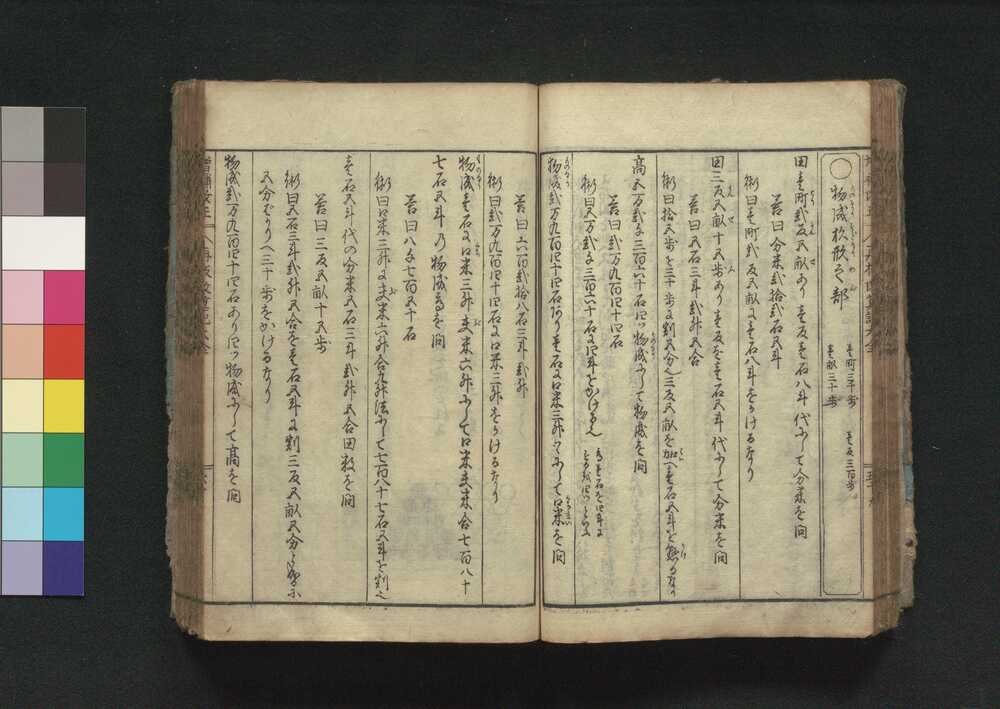 物成杉形之部 壱町三千歩 壱反三百歩 壱畝三十歩
田壱町弐反五畝あり壱反壱石八斗代にして分米を問
答曰分米弐拾弐石五斗
術曰壱町弐反五畝に壱石八斗をかけるなり
田三反五畝十五歩あり壱反を壱石五斗代にして分米を問
答曰五石三斗弐升五合
術曰拾五歩を三十歩に割五分と三反五畝を加へ壱石五斗を懸るなり
高五万弐千三百六十石に四ッ物成にして物成を問
答曰弐万九百四十四石
術曰五万弐千三百六十石に四斗をかける也
物成弐万九百四十四石あり壱石に口米三升にして口米を問
答曰六百弐拾八石三斗弐升
術曰弐万九百四十四石に口米三升をかけるなり
物成壱石に口米三升夫米六升にして口米夫米合七百八十
七石五斗乃物成高を問
答曰八千七百五十石
術曰口米三升に夫米六升合九升法にして七百八十七石五斗を割也
壱石五斗代の分米五石三斗弐升五合田数を問
答曰三反五畝十五歩
術曰五石三斗弐升五合を壱石五斗に割三反五畝五分
五分ばかりへ三十歩をかけるなり
物成弐万九百四十四石あり四ッ物成にして高を問